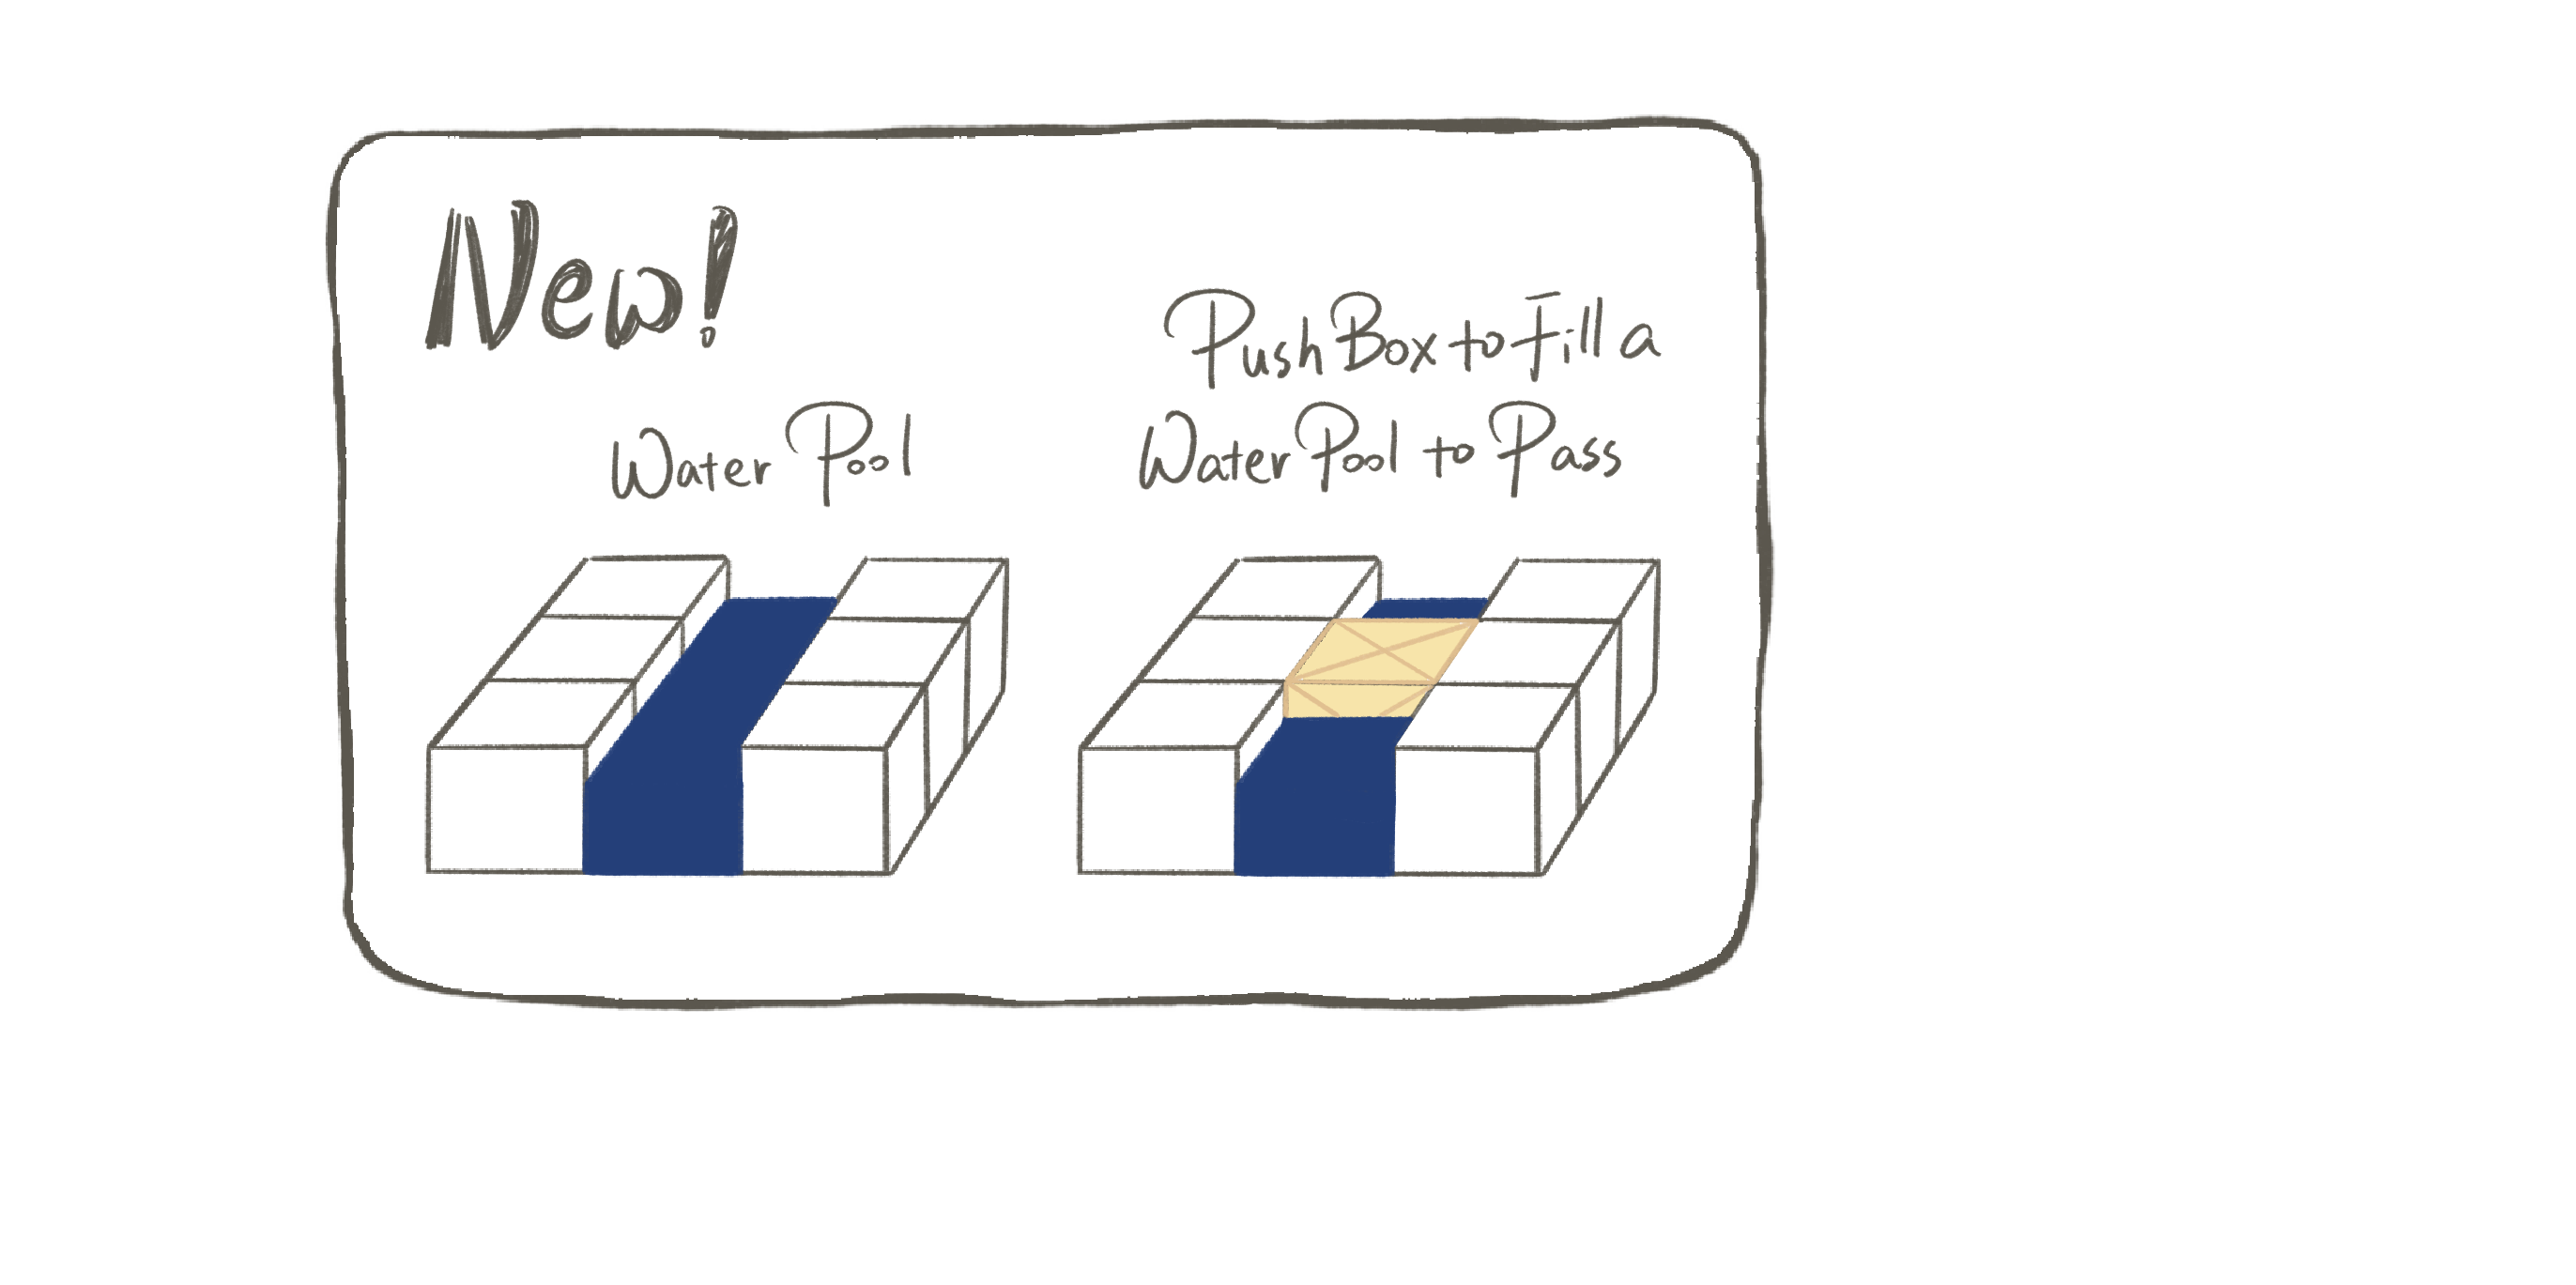 New!
Water Pool
Push Box to Fill a
Water Pool to Pass